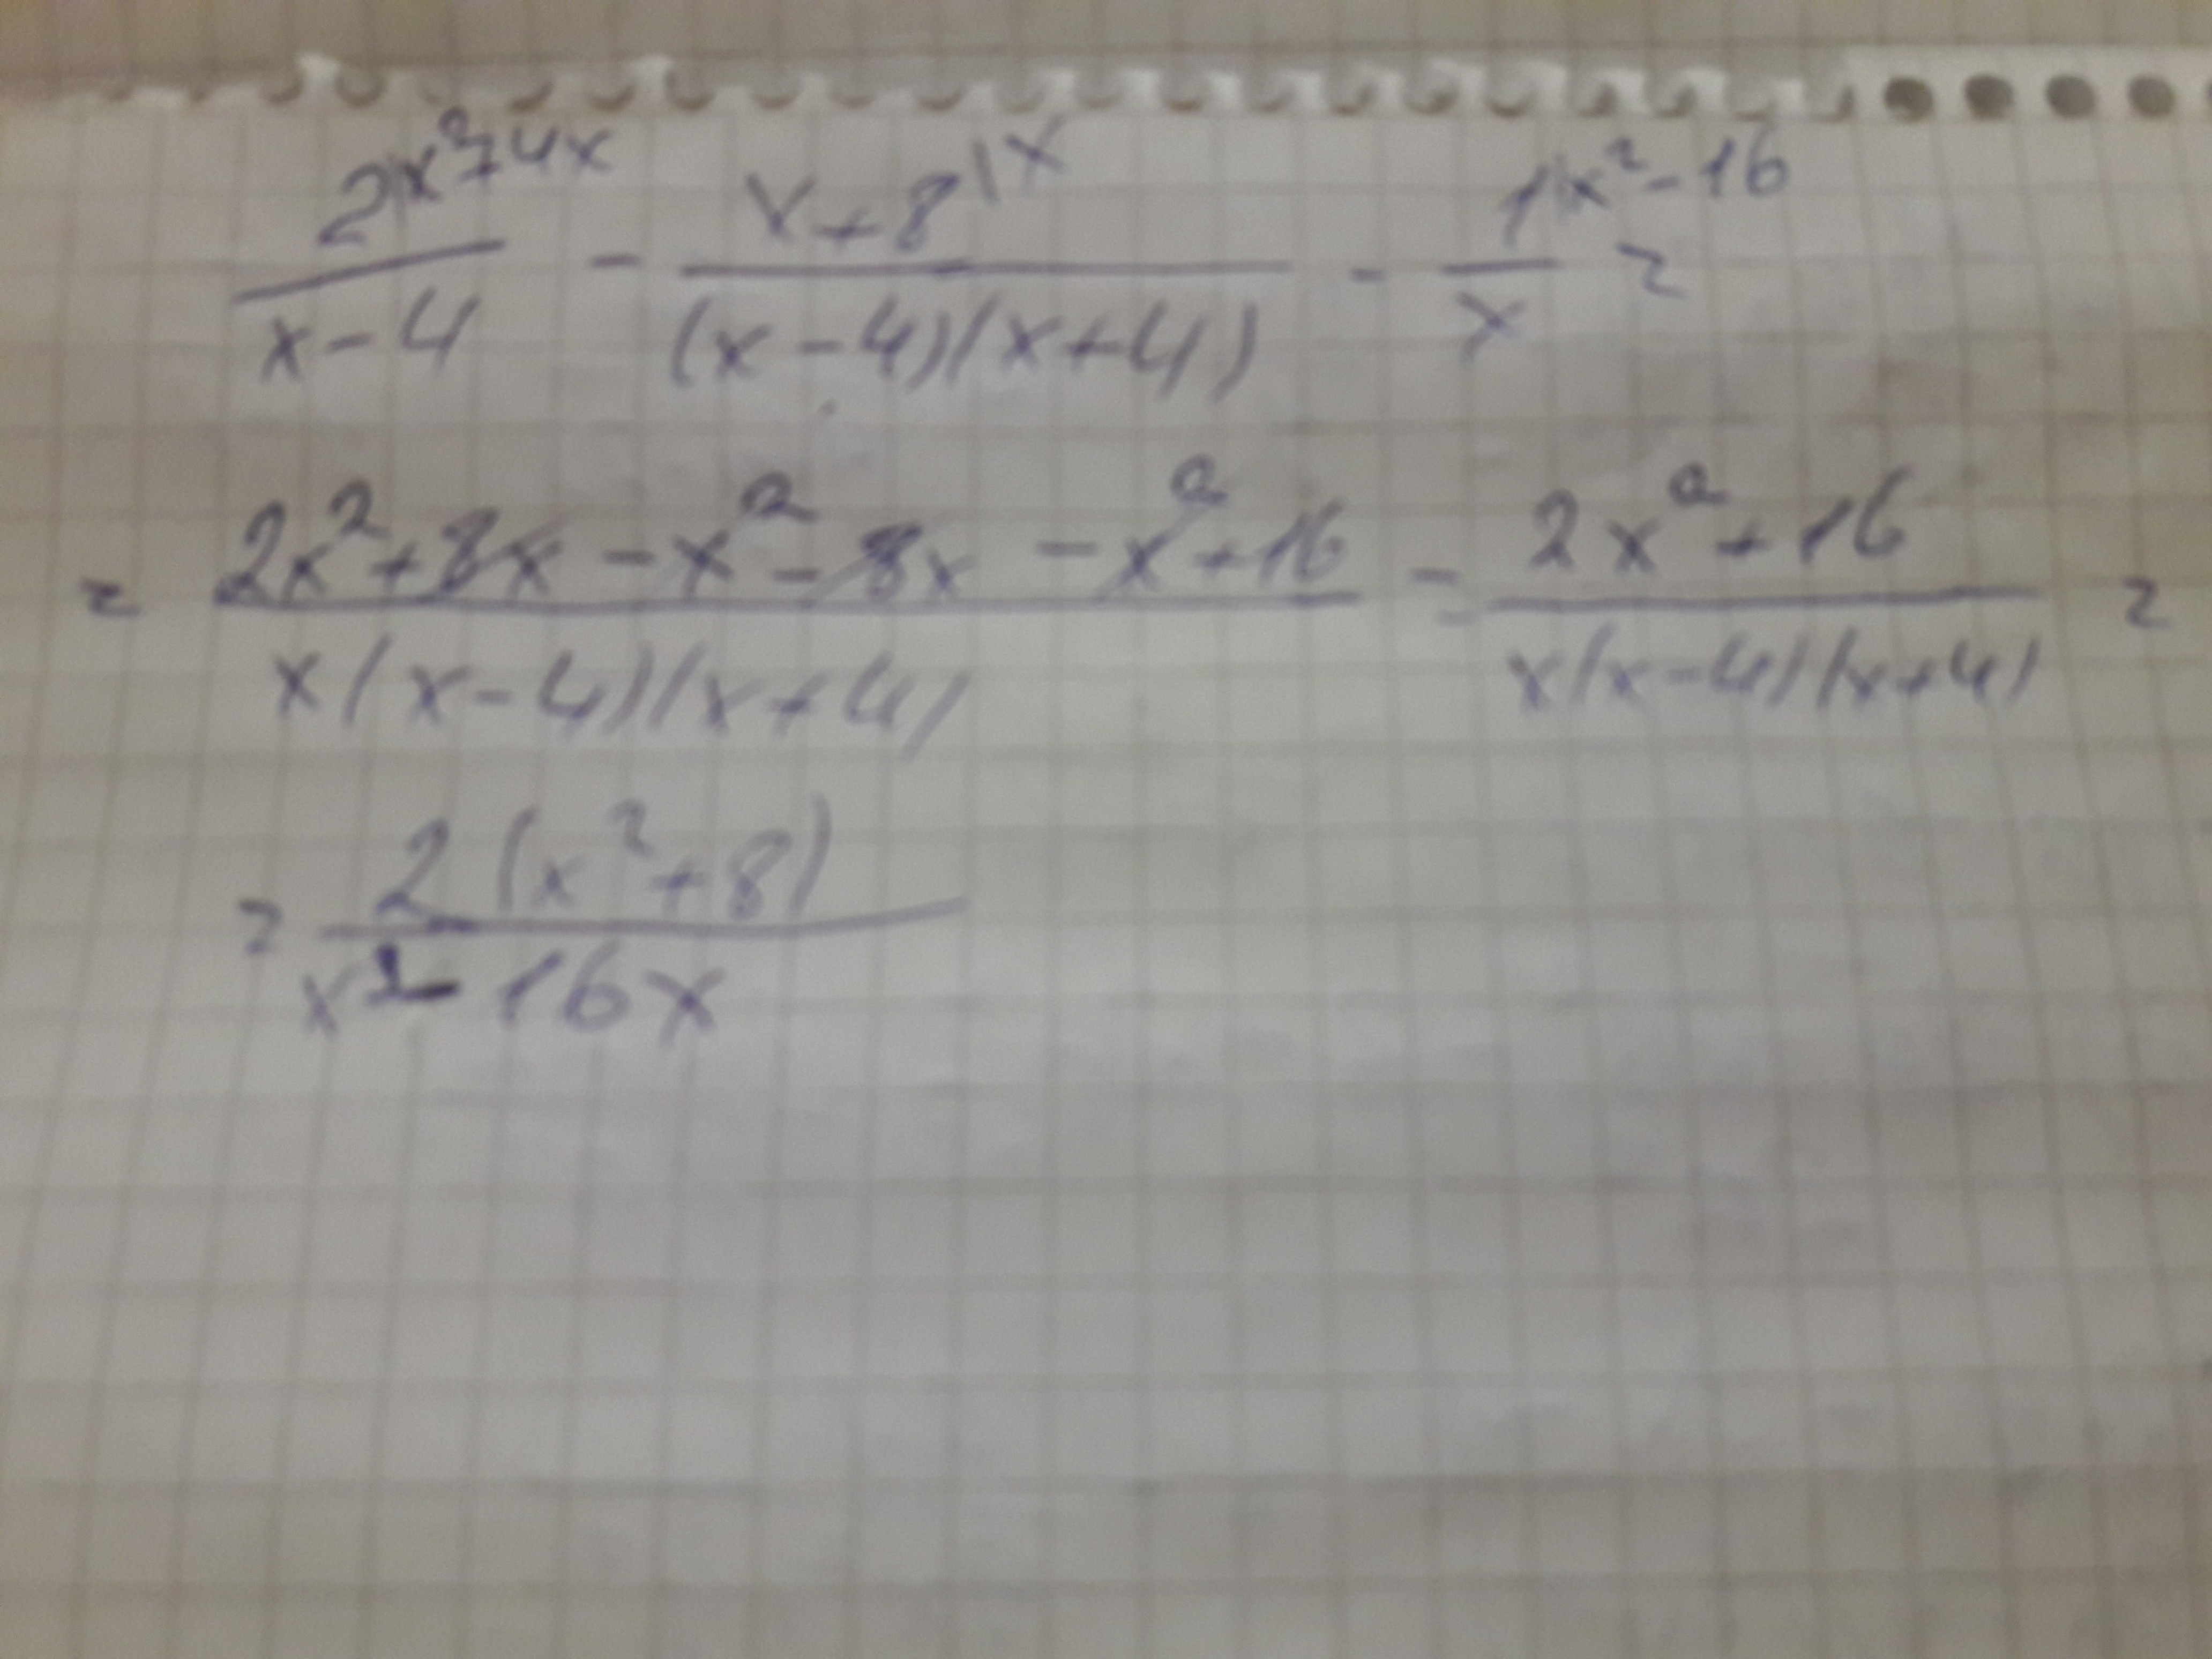 2|x²+4x / x-4 - x+8|x / (x-4)(x+4) - 1|x²-16 / x =
= 2x²+8x-x²-8x-x²+16 / x(x-4)(x+4) = 2x²+16 / x(x-4)(x+4) =
= 2(x²+8) / x²-16x